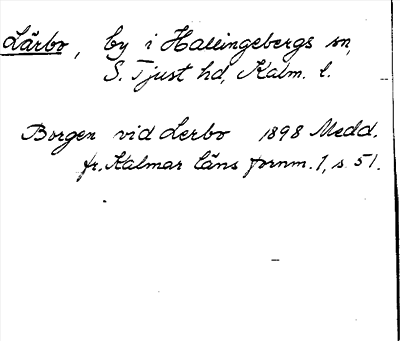 Lärbo, by i Hallingebergs sn,
S. Tjust hd, Kalm. l.
Borgen vid Lerbo 1898 Medd.
fr. Kalmar läns fornm. 1, s. 51.